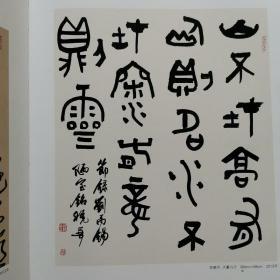 山不在高有
仙則名水不
在深有龍
則靈
節錄劉禹錫
陋室銘